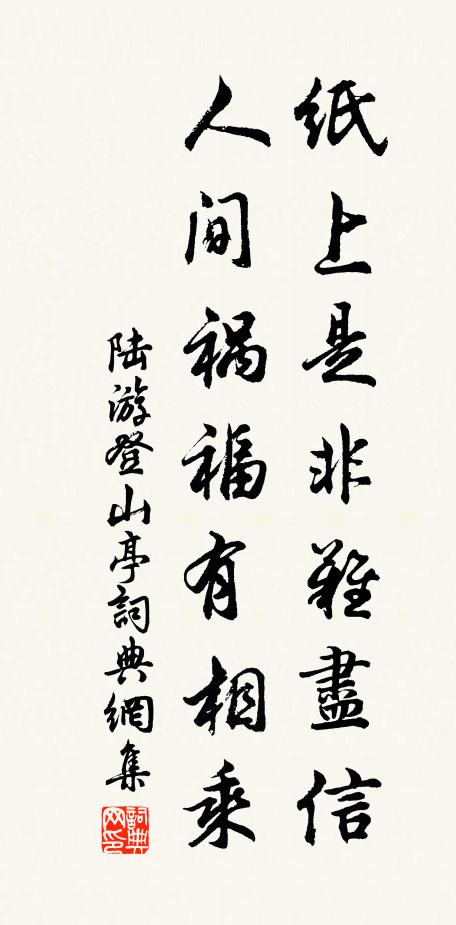 纸上是非難盡信
人间祸福有相乘
陆游登山亭詞典網集
詞典网印